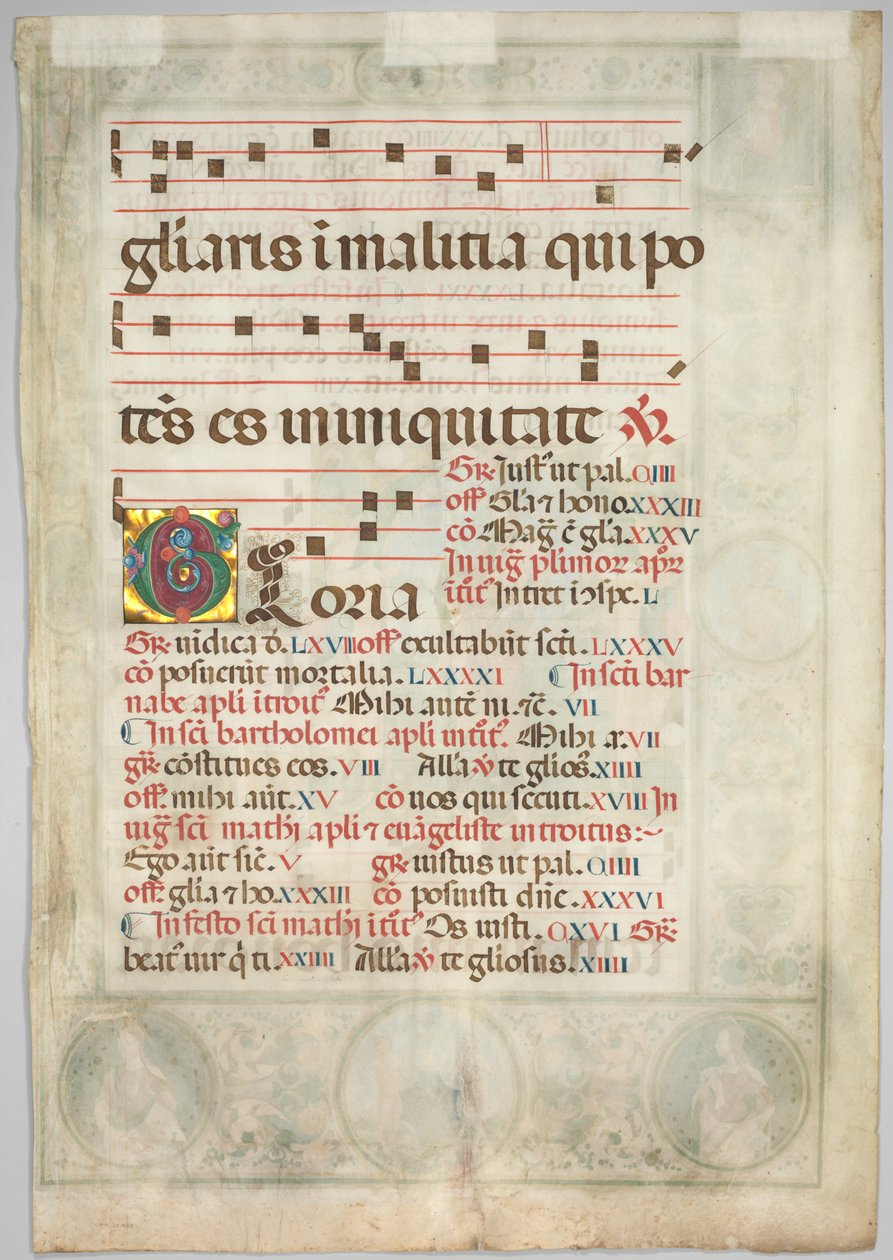 gliaris i malitia qui po
tēs es in iniquitate ℣.
GLoria
Gr. Just' ut pal. CIIII
off Gl'a ⁊ hono. XXXIII
cō Mag̃ ē gl'a. XXXV
In uig̃ plimor apr̃
itit' Intret ī ɔspc. L
Gr. uīdica d. LXVIII off exultabūt scti. LXXXV
cō posuerūt mortalia. LXXXXI In scti bar
nabe apli itroit' Mihi autē ni. ⁊c̄. VII
In sci bartholomei apli intit'. Mihi a. VII
gr. cōstitues eos. VIII All'a ℣ te glios'. XIIII
off. mihi aūt. XV cō uos qui secuti. XVIII In
uig̃ sci mathi apli ⁊ euāgeliste introitus:~
Ego aūt sic̄. V gr. iustus ut pal. CIIII
off. glia ⁊ ho. XXXIII cō posuisti dn̄e. XXXVI
In festo sci mathi itit' Os iusti. CXVI Gr.
beat' uir q̇ ti. XXIIII All'a ℣ te gliosus. XIIII